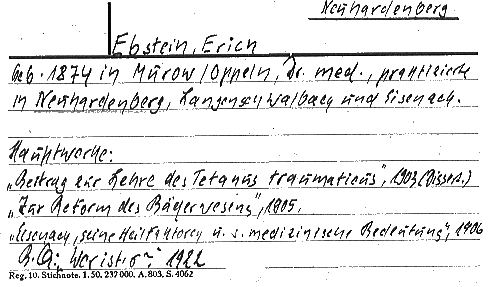 Neuhardenberg
Ebstein, Erich
Geb. 1874 in Murow/Oppeln, Dr. med., praktizierte
in Neuhardenberg, Langenschwalbach und Eisenach.
Hauptwerke:
„Beitrag zur Lehre des Tetanus traumaticus", 1903 (Dissert.)
„Zur Reform des Bäderwesens", 1905.
„Eisenach, seine Heilfaktoren u. s. medizinische Bedeutung", 1906
1922
Reg. 10. Stichnote. I. 50. 237 000. A. 803. S. 4062